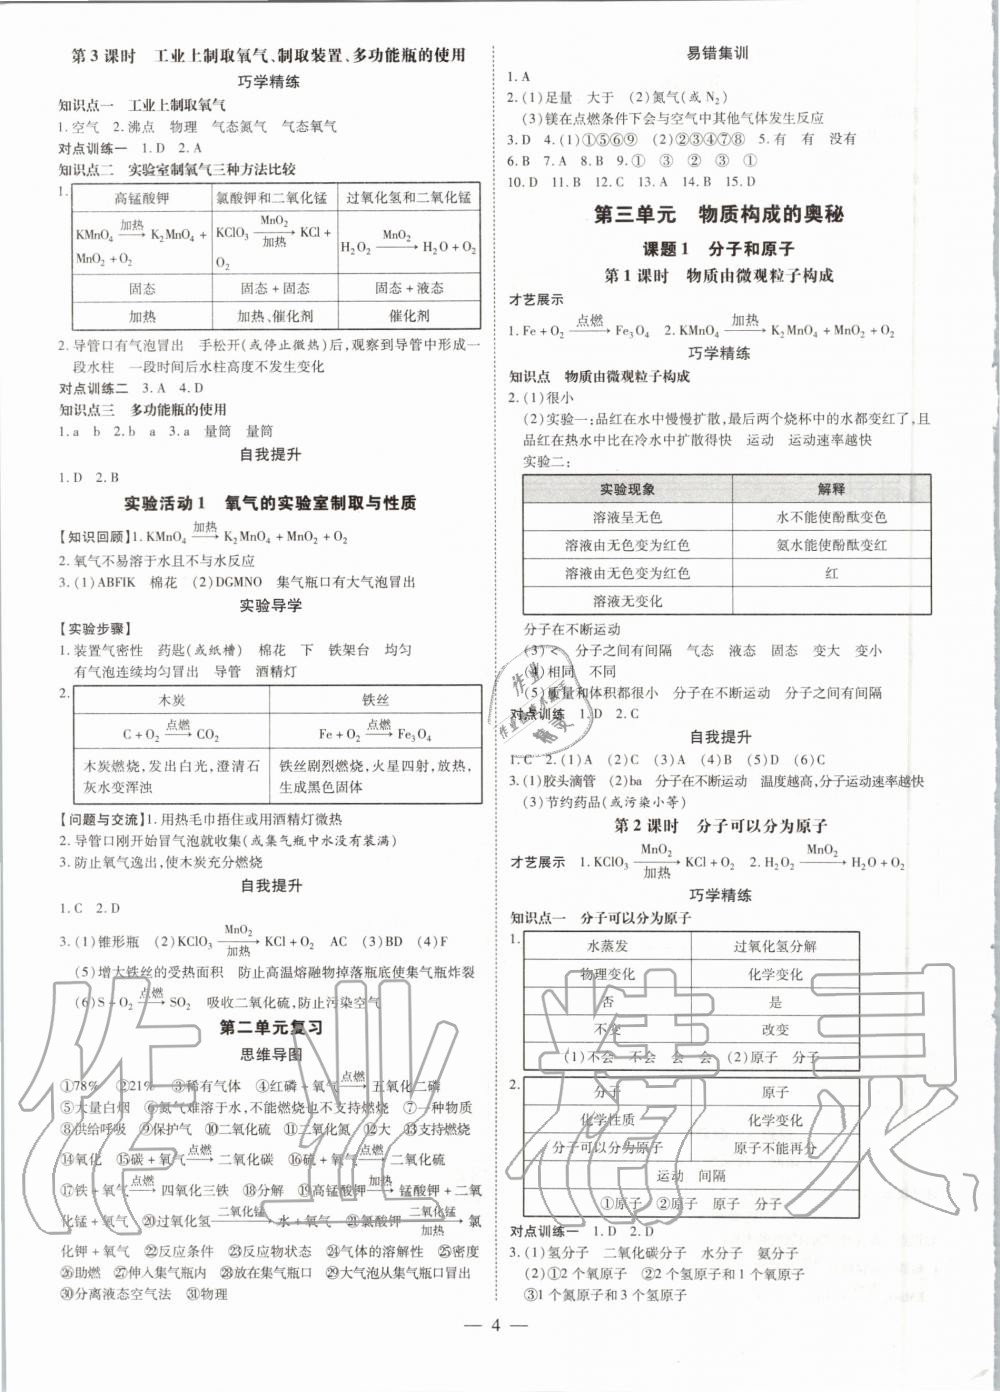 第3课时 工业上制取氧气、制取装置、多功能瓶的使用
巧学精练
知识点一 工业上制取氧气
1.空气 2.沸点 物理 气态氮气 气态氧气
对点训练一 1.D 2.A
知识点二 实验室制氧气三种方法比较
1.
高锰酸钾 氯酸钾和二氧化锰 过氧化氢和二氧化锰
KMnO4 —加热→ K2MnO4 + MnO2 + O2
KClO3 —MnO2/加热→ KCl + O2
H2O2 —MnO2→ H2O + O2
固态 固态+固态 固态+液态
加热 加热、催化剂 催化剂
2.导管口有气泡冒出 手松开(或停止微热)后,观察到导管中形成一
段水柱 一段时间后水柱高度不发生变化
对点训练二 3.A 4.D
知识点三 多功能瓶的使用
1.a b 2.b a 3.a 量筒 量筒
自我提升
1.D 2.B
实验活动1 氧气的实验室制取与性质
【知识回顾】1.KMnO4 —加热→ K2MnO4 + MnO2 + O2
2.氧气不易溶于水且不与水反应
3.(1)ABFIK 棉花 (2)DGMNO 集气瓶口有大气泡冒出
实验导学
【实验步骤】
1.装置气密性 药匙(或纸槽) 棉花 下 铁架台 均匀
有气泡连续均匀冒出 导管 酒精灯
2.
木炭 铁丝
C + O2 —点燃→ CO2 Fe + O2 —点燃→ Fe3O4
木炭燃烧,发出白光,澄清石
灰水变浑浊
铁丝剧烈燃烧,火星四射,放热,
生成黑色固体
【问题与交流】1.用热毛巾捂住或用酒精灯微热
2.导管口刚开始冒气泡就收集(或集气瓶中水没有装满)
3.防止氧气逸出,使木炭充分燃烧
自我提升
1.C 2.D
3.(1)锥形瓶 (2)KClO3 —MnO2/加热→ KCl + O2 AC (3)BD (4)F
(5)增大铁丝的受热面积 防止高温熔融物掉落瓶底使集气瓶炸裂
(6)S + O2 —点燃→ SO2 吸收二氧化硫,防止污染空气
第二单元复习
思维导图
①78% ②21% ③稀有气体 ④红磷+氧气 —点燃→ 五氧化二磷
⑤大量白烟 ⑥氮气难溶于水,不能燃烧也不支持燃烧 ⑦一种物质
⑧供给呼吸 ⑨保护气 ⑩二氧化硫 ⑪二氧化氮 ⑫大 ⑬支持燃烧
⑭氧化 ⑮碳+氧气 —点燃→ 二氧化碳 ⑯硫+氧气 —点燃→ 二氧化硫
⑰铁+氧气 —点燃→ 四氧化三铁 ⑱分解 ⑲高锰酸钾 —加热→ 锰酸钾+二氧
化锰+氧气 ⑳过氧化氢 —二氧化锰→ 水+氧气 ㉑氯酸钾 —二氧化锰/加热→ 氯
化钾+氧气 ㉒反应条件 ㉓反应物状态 ㉔气体的溶解性 ㉕密度
㉖助燃 ㉗伸入集气瓶内 ㉘放在集气瓶口 ㉙大气泡从集气瓶口冒出
㉚分离液态空气法 ㉛物理
易错集训
1.A
2.(1)足量 大于 (2)氮气(或N2)
(3)镁在点燃条件下会与空气中其他气体发生反应
3.D 4.(1)①⑤⑥⑨ (2)②③④⑦⑧ 5.有 有 没有
6.B 7.A 8.B 9.① ③ ② ③ ①
10.D 11.B 12.C 13.A 14.B 15.D
第三单元 物质构成的奥秘
课题1 分子和原子
第1课时 物质由微观粒子构成
才艺展示
1.Fe + O2 —点燃→ Fe3O4 2.KMnO4 —加热→ K2MnO4 + MnO2 + O2
巧学精练
知识点 物质由微观粒子构成
2.(1)很小
(2)实验一:品红在水中慢慢扩散,最后两个烧杯中的水都变红了,且
品红在热水中比在冷水中扩散得快 运动 运动速率越快
实验二:
实验现象 解释
溶液呈无色 水不能使酚酞变色
溶液由无色变为红色 氨水能使酚酞变红
溶液由无色变为红色 红
溶液无变化
分子在不断运动
(3)< 分子之间有间隔 气态 液态 固态 变大 变小
(4)相同 不同
(5)质量和体积都很小 分子在不断运动 分子之间有间隔
对点训练 1.D 2.C
自我提升
1.C 2.(1)A (2)C (3)A (4)B (5)D (6)C
3.(1)胶头滴管 (2)ba 分子在不断运动 温度越高,分子运动速率越快
(3)节约药品(或污染小等)
第2课时 分子可以分为原子
才艺展示 1.KClO3 —MnO2/加热→ KCl + O2 2.H2O2 —MnO2→ H2O + O2
巧学精练
知识点一 分子可以分为原子
1.
水蒸发 过氧化氢分解
物理变化 化学变化
否 是
不变 改变
(1)不会 不会 会 会 (2)原子 分子
2.
分子 原子
化学性质 化学变化
分子可以分为原子 原子不能再分
运动 间隔
①原子 ②原子 原子 分子
对点训练一 1.D 2.D
3.(1)氢分子 二氧化碳分子 水分子 氨分子
(2)①2个氧原子 ②2个氢原子和1个氧原子
③1个氮原子和3个氢原子
— 4 —
作业精灵